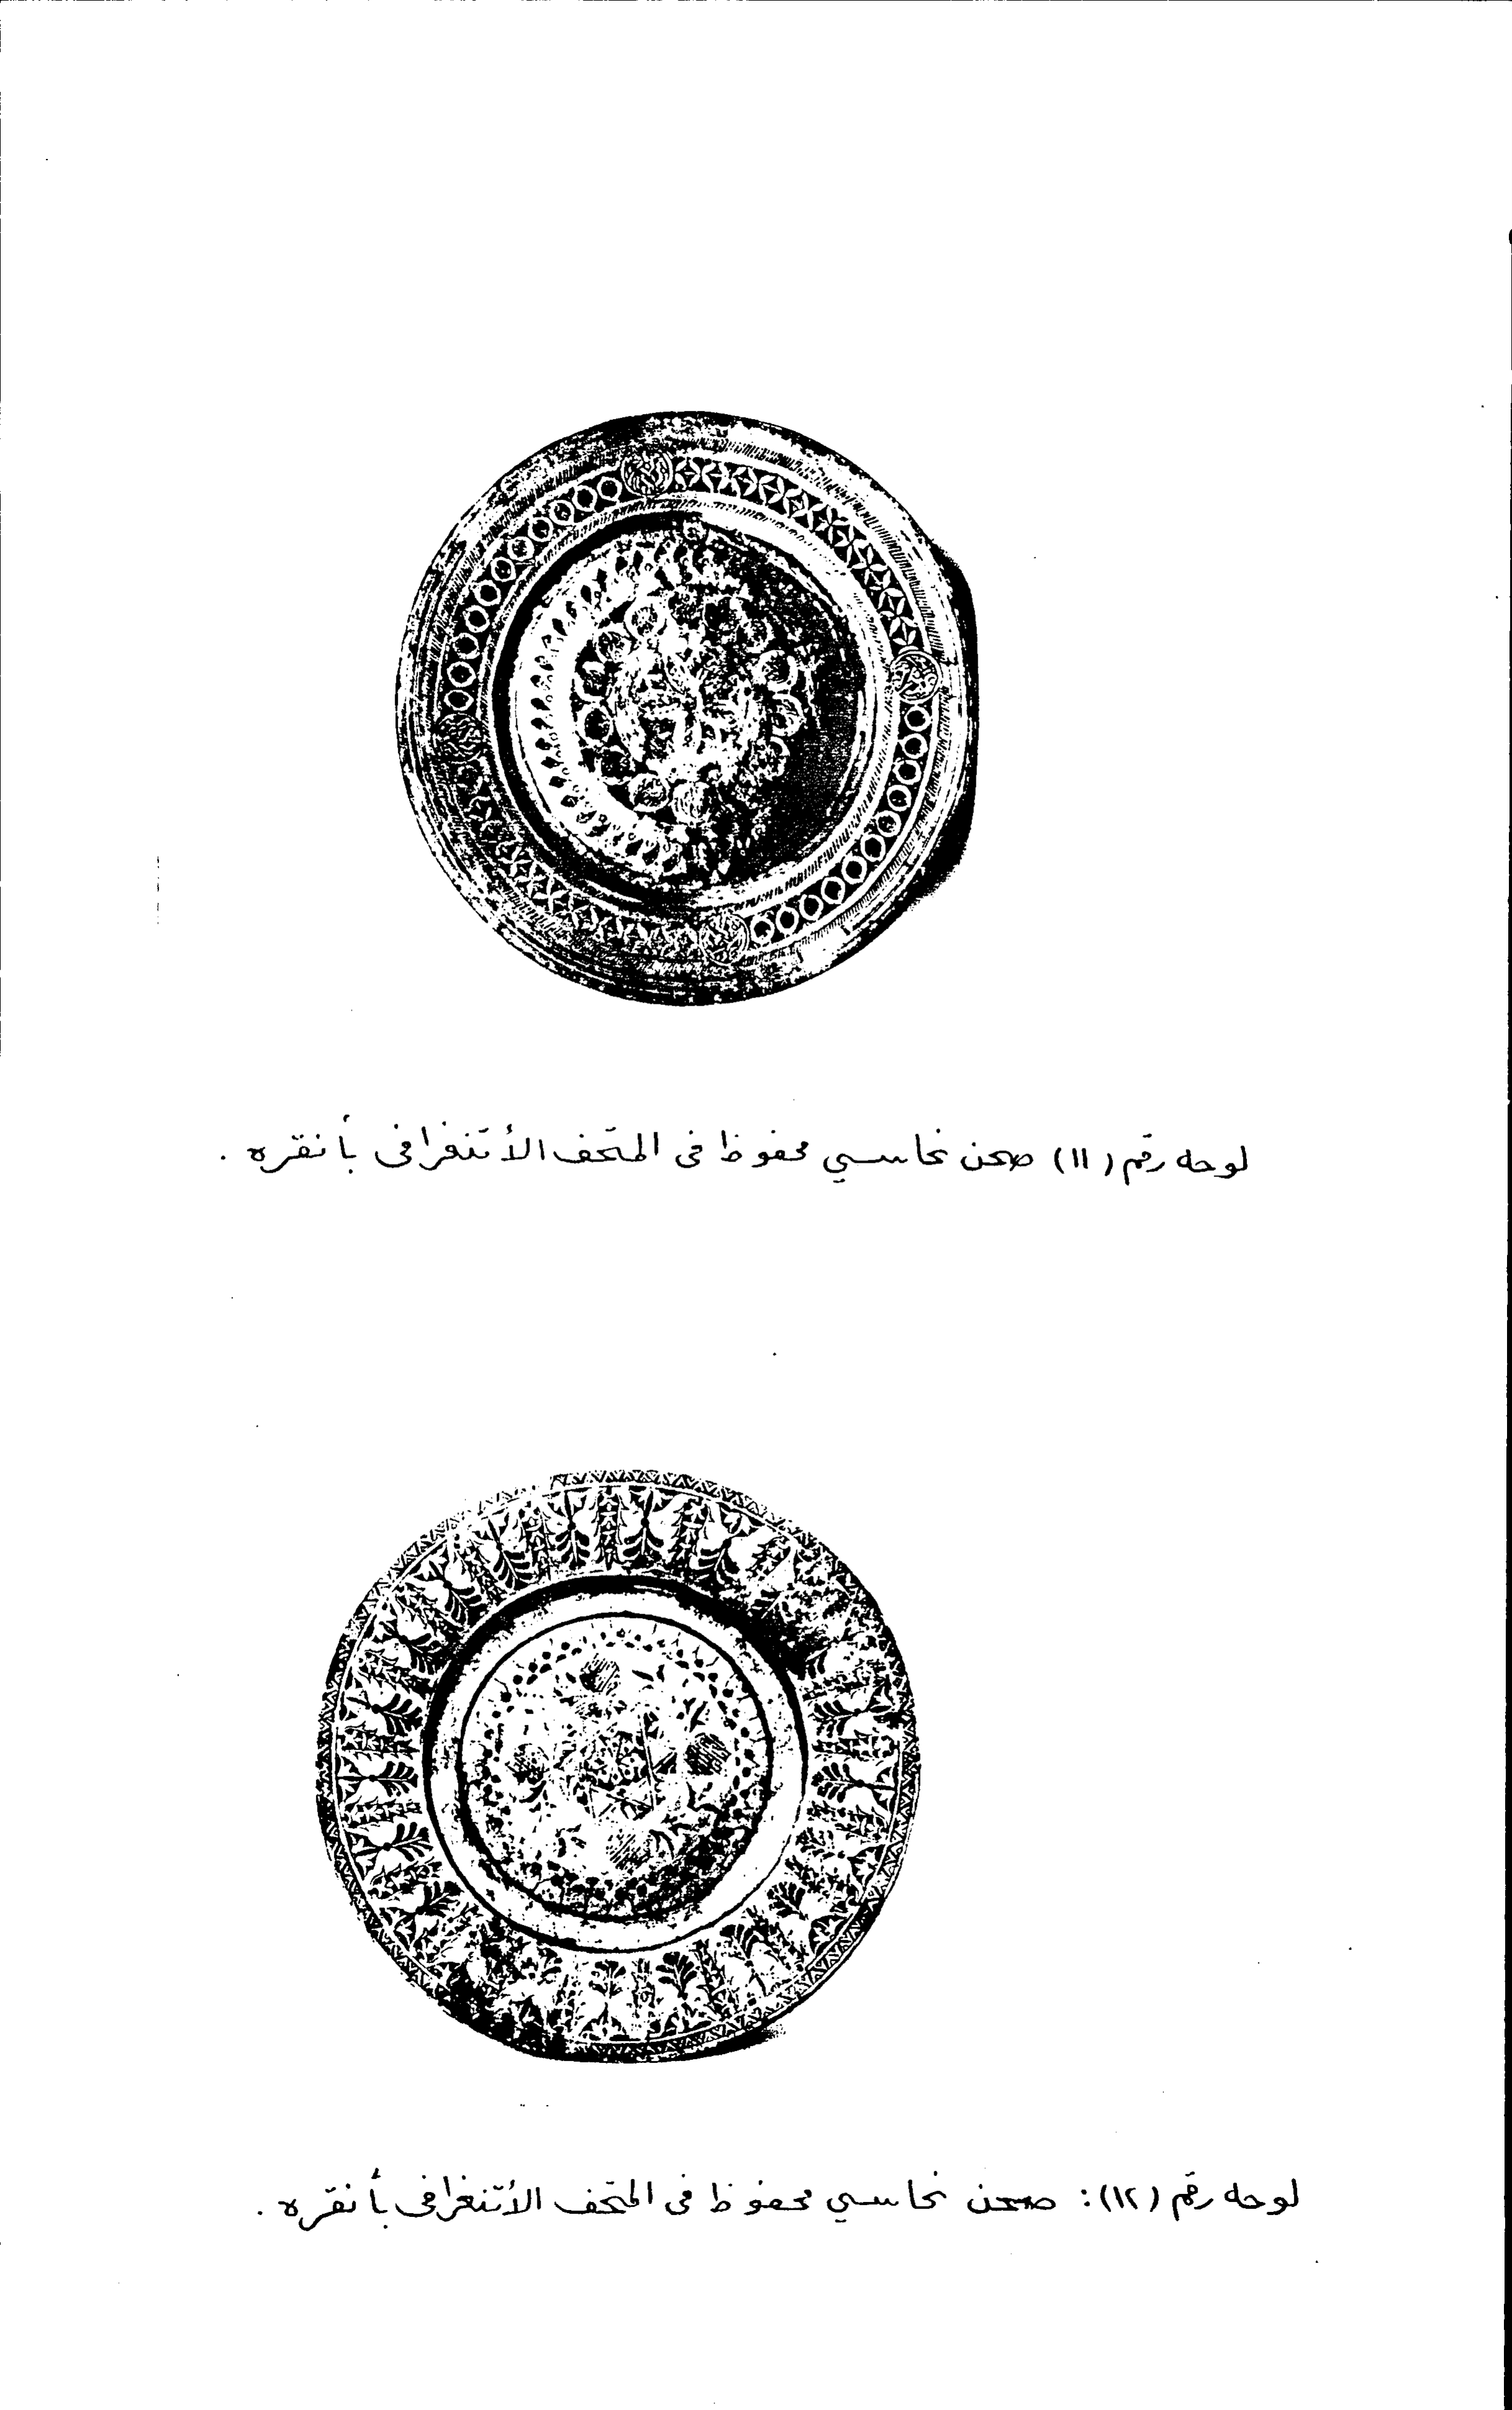 لوحه رقم (١١) صحن نحاسي محفوظ فى المتحف الأتنغرافى بأنقره .
لوحه رقم (١٢): صحن نحاسي محفوظ فى المتحف الأتنغرافى بأنقره .